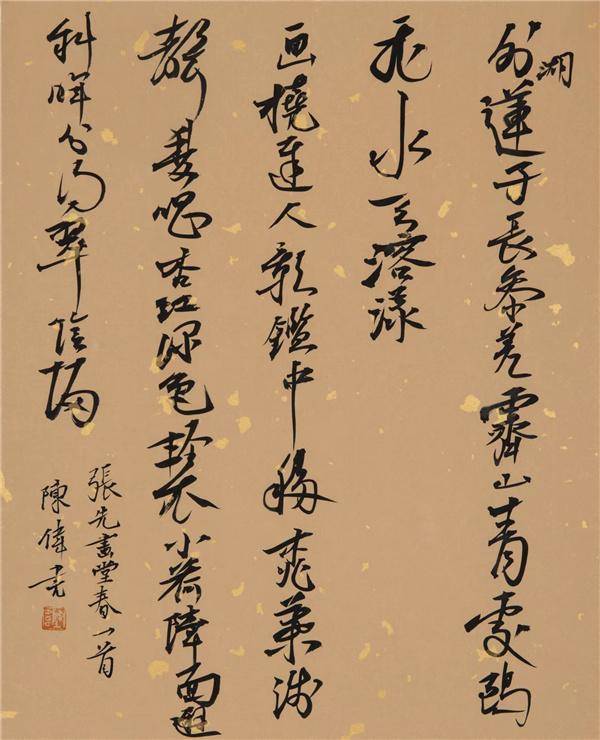 外湖蓮子長參差霽山青處鷗
飛水天溶漾
画橈遲人影鑑中移桃葉淺
聲雙唱杏紅深色輕衣小荷障面避
斜暉分得翠陰歸
張先畫堂春一首
陳偉亮